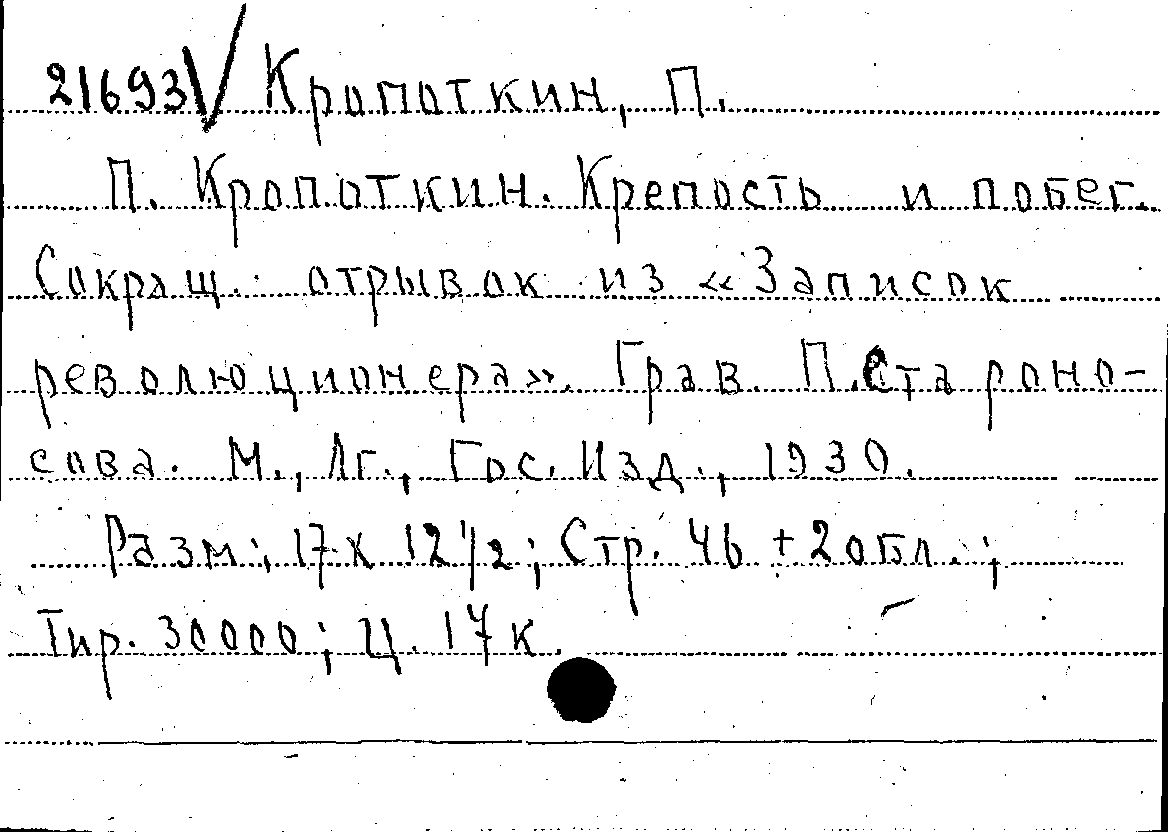 21693 Кропоткин, П.
П. Кропоткин. Крепость и побег.
Сокращ. отрывок из «Записок
революционера». Грав. П. Староно-
сова. М., Лг., Гос. Изд., 1930.
Разм; 17 х 12 1/2; Стр. 46 + 2 обл.;
Тир. 30000; Ц. 17 к.